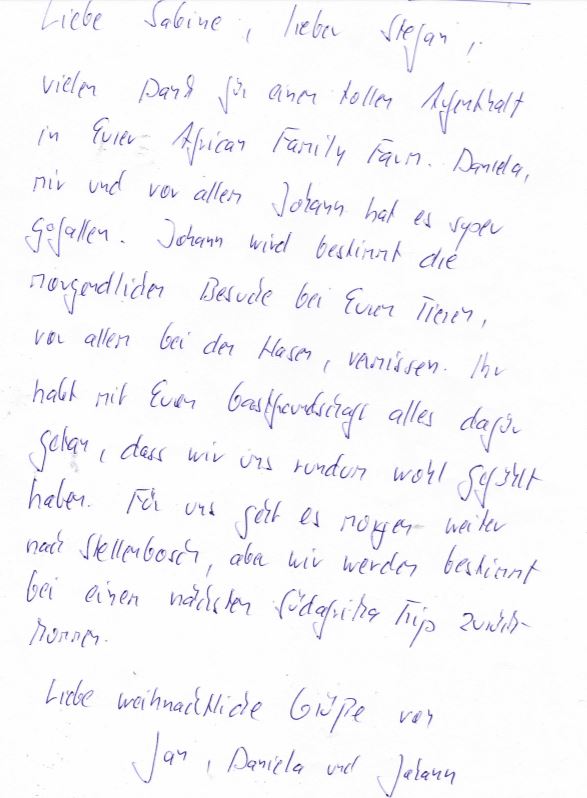 Liebe Sabine, lieber Stefan,
vielen Dank für einen tollen Aufenthalt
in Eurer African Family Farm. Daniela,
mir und vor allem Johann hat es super
gefallen. Johann wird bestimmt die
morgendlichen Besuche bei Euren Tieren,
vor allem bei den Hasen, vermissen. Ihr
habt mit Eurer Gastfreundschaft alles dafür
getan, dass wir uns rundum wohl gefühlt
haben. Für uns geht es morgen weiter
nach Stellenbosch, aber wir werden bestimmt
bei einem nächsten Südafrika Trip zurück-
kommen.
Liebe weihnachtliche Grüße von
Jan, Daniela und Johann